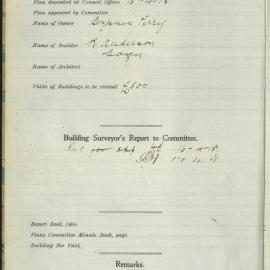 Plan deposited at Council Office 15-4-18
Plan approved by Committee
Name of Owner Benjamin Terry
Name of Builder R Anderson
Name of Architect
Value of Buildings to be erected £500
Building Surveyor's Report to Committee.
16-4-18
Report Book, folio
Plans Committee Minute Book, page
Building Fee Paid,
Remarks.